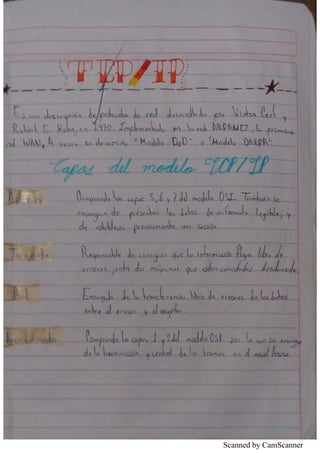 TCP/IP
Es una descripción de protocolos de red desarrollado por Vinton Cerf y
Robert E. Kahn, en 1970. Implementado en la red ARPANET, la primera
red WAN, A veces se denomina "Modelo DoD" o "Modelo DARPA"
Capas del modelo TCP/IP
Comprende las capas 5, 6 y 7 del modelo OSI. También se
encargan de presentar los datos de un formato legible, y
de establecer previamente una sesión.
Responsable de conseguir que la información fluya libre de
errores, entre dos máquinas que estén conectadas directamente.
Red
Encargado de la transferencia libre de errores de los datos
entre el emisor y el receptor.
Comprende la capa 1 y 2 del modelo OSI. por lo que se encarga
de la transmisión y control de las tramas en el nivel físico.
Scanned by CamScanner